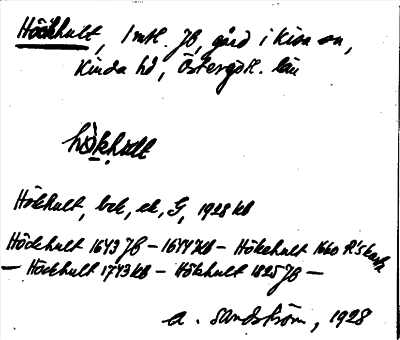 Höckhult, 1 mtl. JB, gård i Kisa sn,
Kinda hd, Östergötl. län
Hökhult, bek, ek, G, 1928 kb
Höckhult 1643 JB – 1644 kb – Hökehult 1660 R's karta
– Höckhult 1743 kb – Hökhult 1825 JB –
A. Sandström, 1928